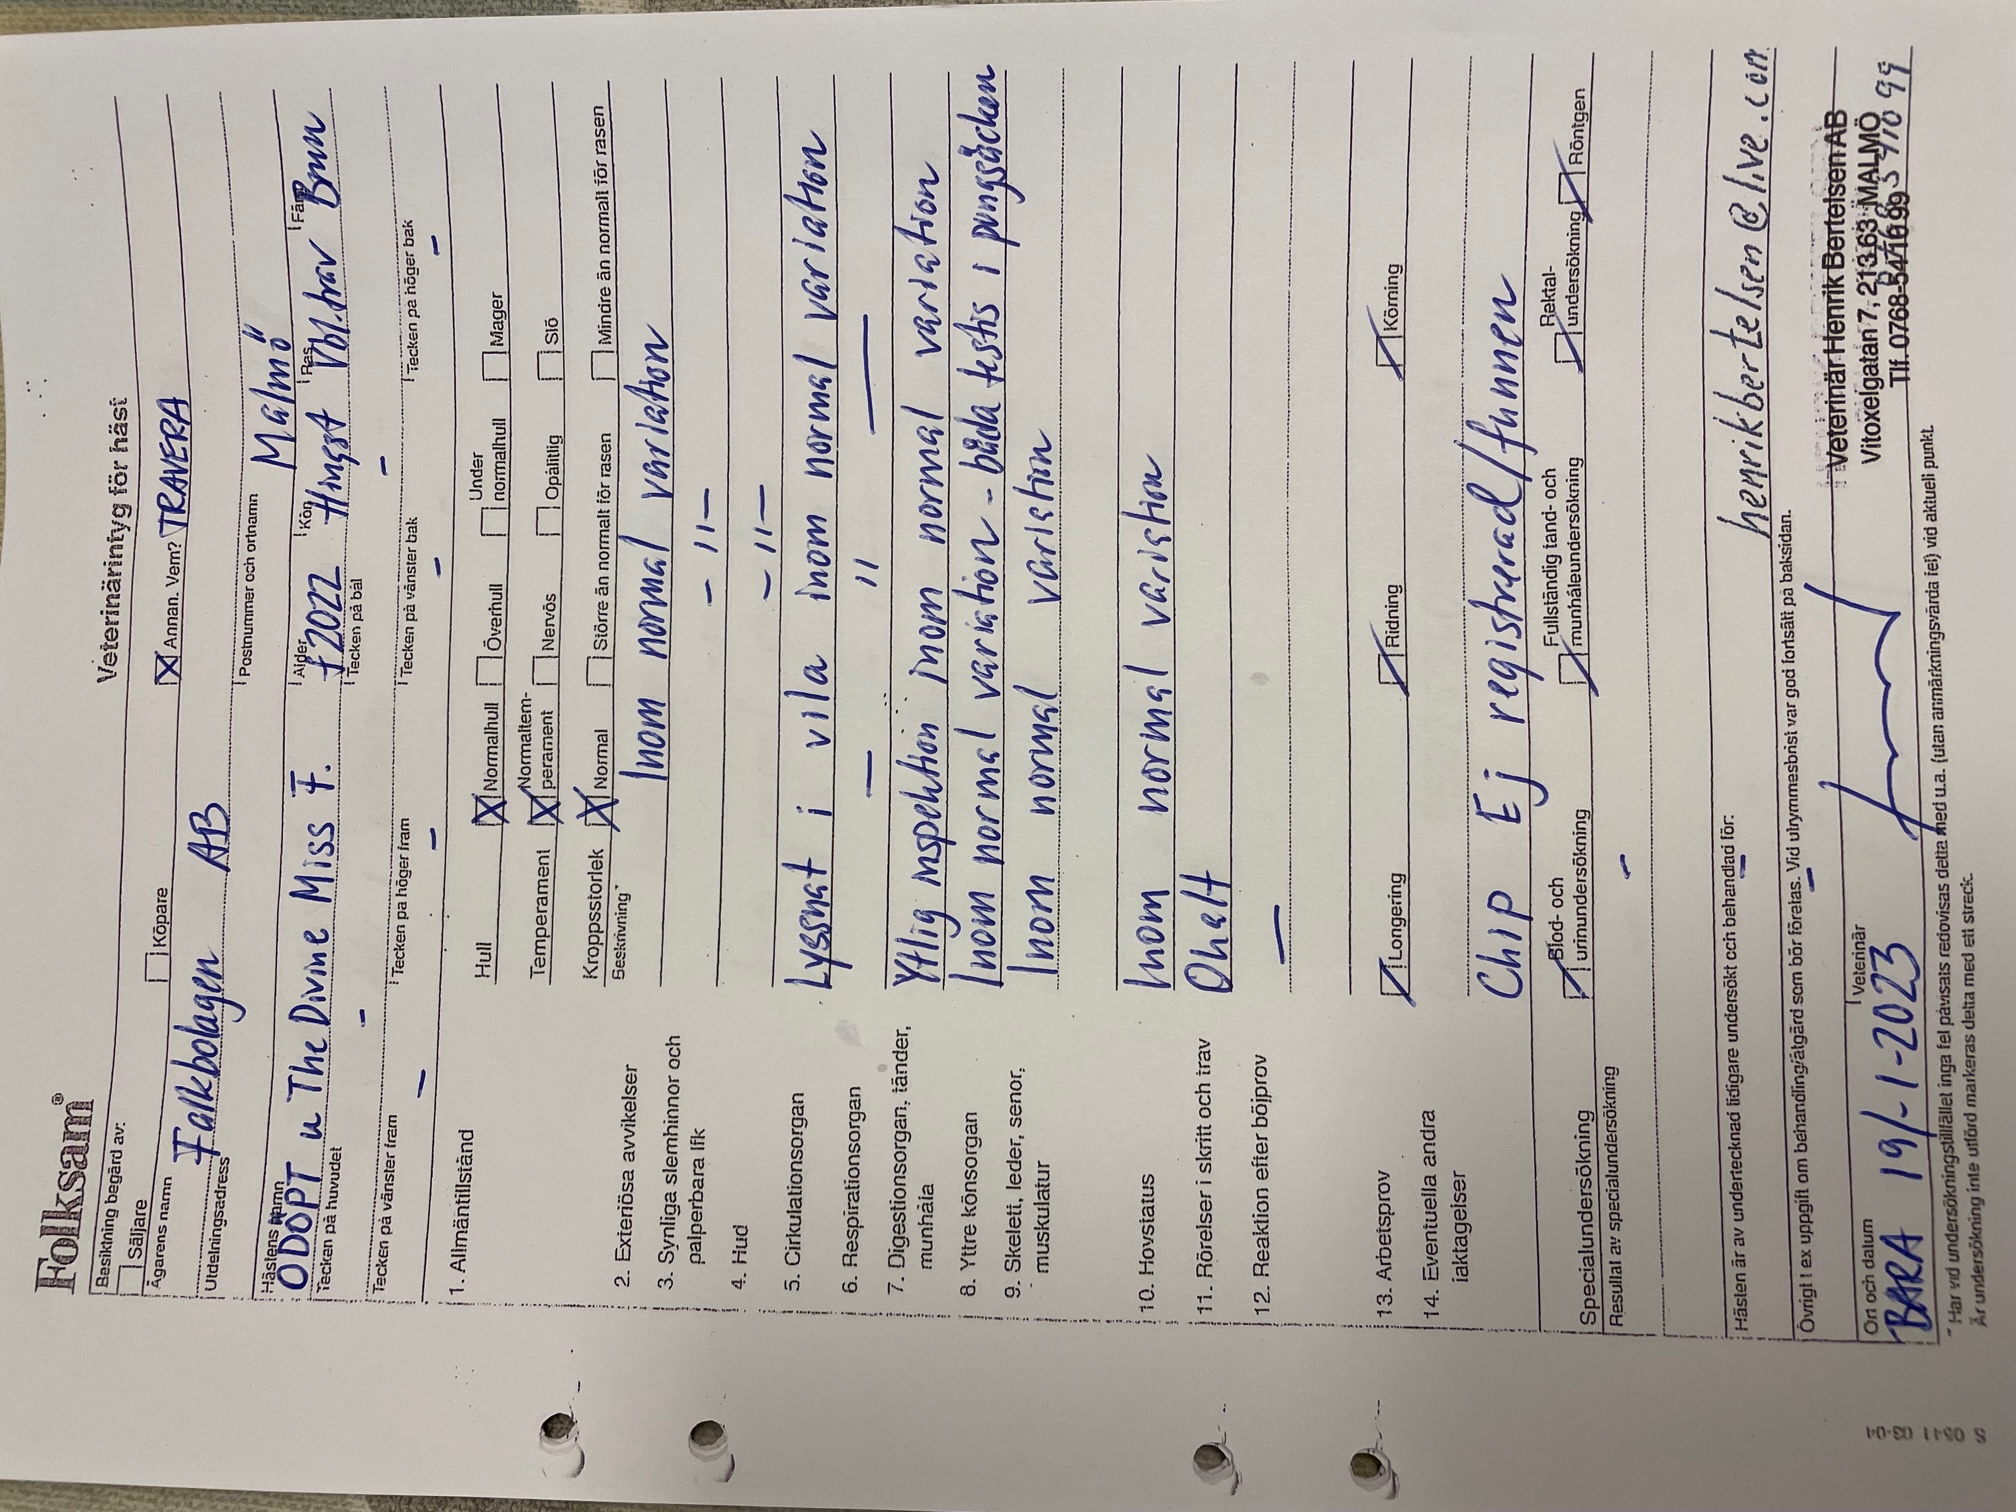 Folksam®
Veterinärintyg för häst
Besiktning begärd av:
Säljare
Köpare
Annan. Vem? TRAVERA
Ägarens namn
Falkbolagen AB
Utdelningsadress
Postnummer och ortnamn
Malmö
Hästens namn
ODÖPT u The Divine Miss F.
Ålder
f 2022
Kön
Hingst
Ras
Vbl.trav
Färg
Brun
Tecken på huvudet
-
Tecken på bål
-
Tecken på vänster fram
-
Tecken på höger fram
-
Tecken på vänster bak
-
Tecken på höger bak
-
1. Allmäntillstånd
Hull
Normalhull
Överhull
Under normalhull
Mager
Temperament
Normaltem-
perament
Nervös
Opålitlig
Slö
Kroppsstorlek
Normal
Större än normalt för rasen
Mindre än normalt för rasen
Beskrivning*
2. Exteriösa avvikelser
Inom normal variation
3. Synliga slemhinnor och
palperbara lfk
- 11 -
4. Hud
- 11 -
5. Cirkulationsorgan
Lyssnat i vila inom normal variation
6. Respirationsorgan
— 11 —
7. Digestionsorgan, tänder,
munhåla
Ytlig inspektion inom normal variation
8. Yttre könsorgan
Inom normal variation - båda testis i pungsäcken
9. Skelett, leder, senor,
muskulatur
Inom normal variation
10. Hovstatus
Inom normal variation
11. Rörelser i skritt och trav
Ohalt
12. Reaktion efter böjprov
—
13. Arbetsprov
Longering
Ridning
Körning
14. Eventuella andra
iakttagelser
Chip Ej registrerad/funnen
Specialundersökning
Blod- och
urinundersökning
Fullständig tand- och
munhåleundersökning
Rektal-
undersökning
Röntgen
Resultat av specialundersökning
-
Hästen är av undertecknad tidigare undersökt och behandlad för:
-
henrikbertelsen@live.com
Övrigt t ex uppgift om behandling/åtgärd som bör företas. Vid utrymmesbrist var god fortsätt på baksidan.
-
Ort och datum
BARA 19/-1-2023
Veterinär
Veterinär Henrik Bertelsen AB
Vitoxelgatan 7, 213 63 MALMÖ
Tlf. 0768-541099
* Har vid undersökningstillfället inga fel påvisats redovisas detta med u.a. (utan anmärkningsvärda fel) vid aktuell punkt.
Är undersökning inte utförd markeras detta med ett streck.